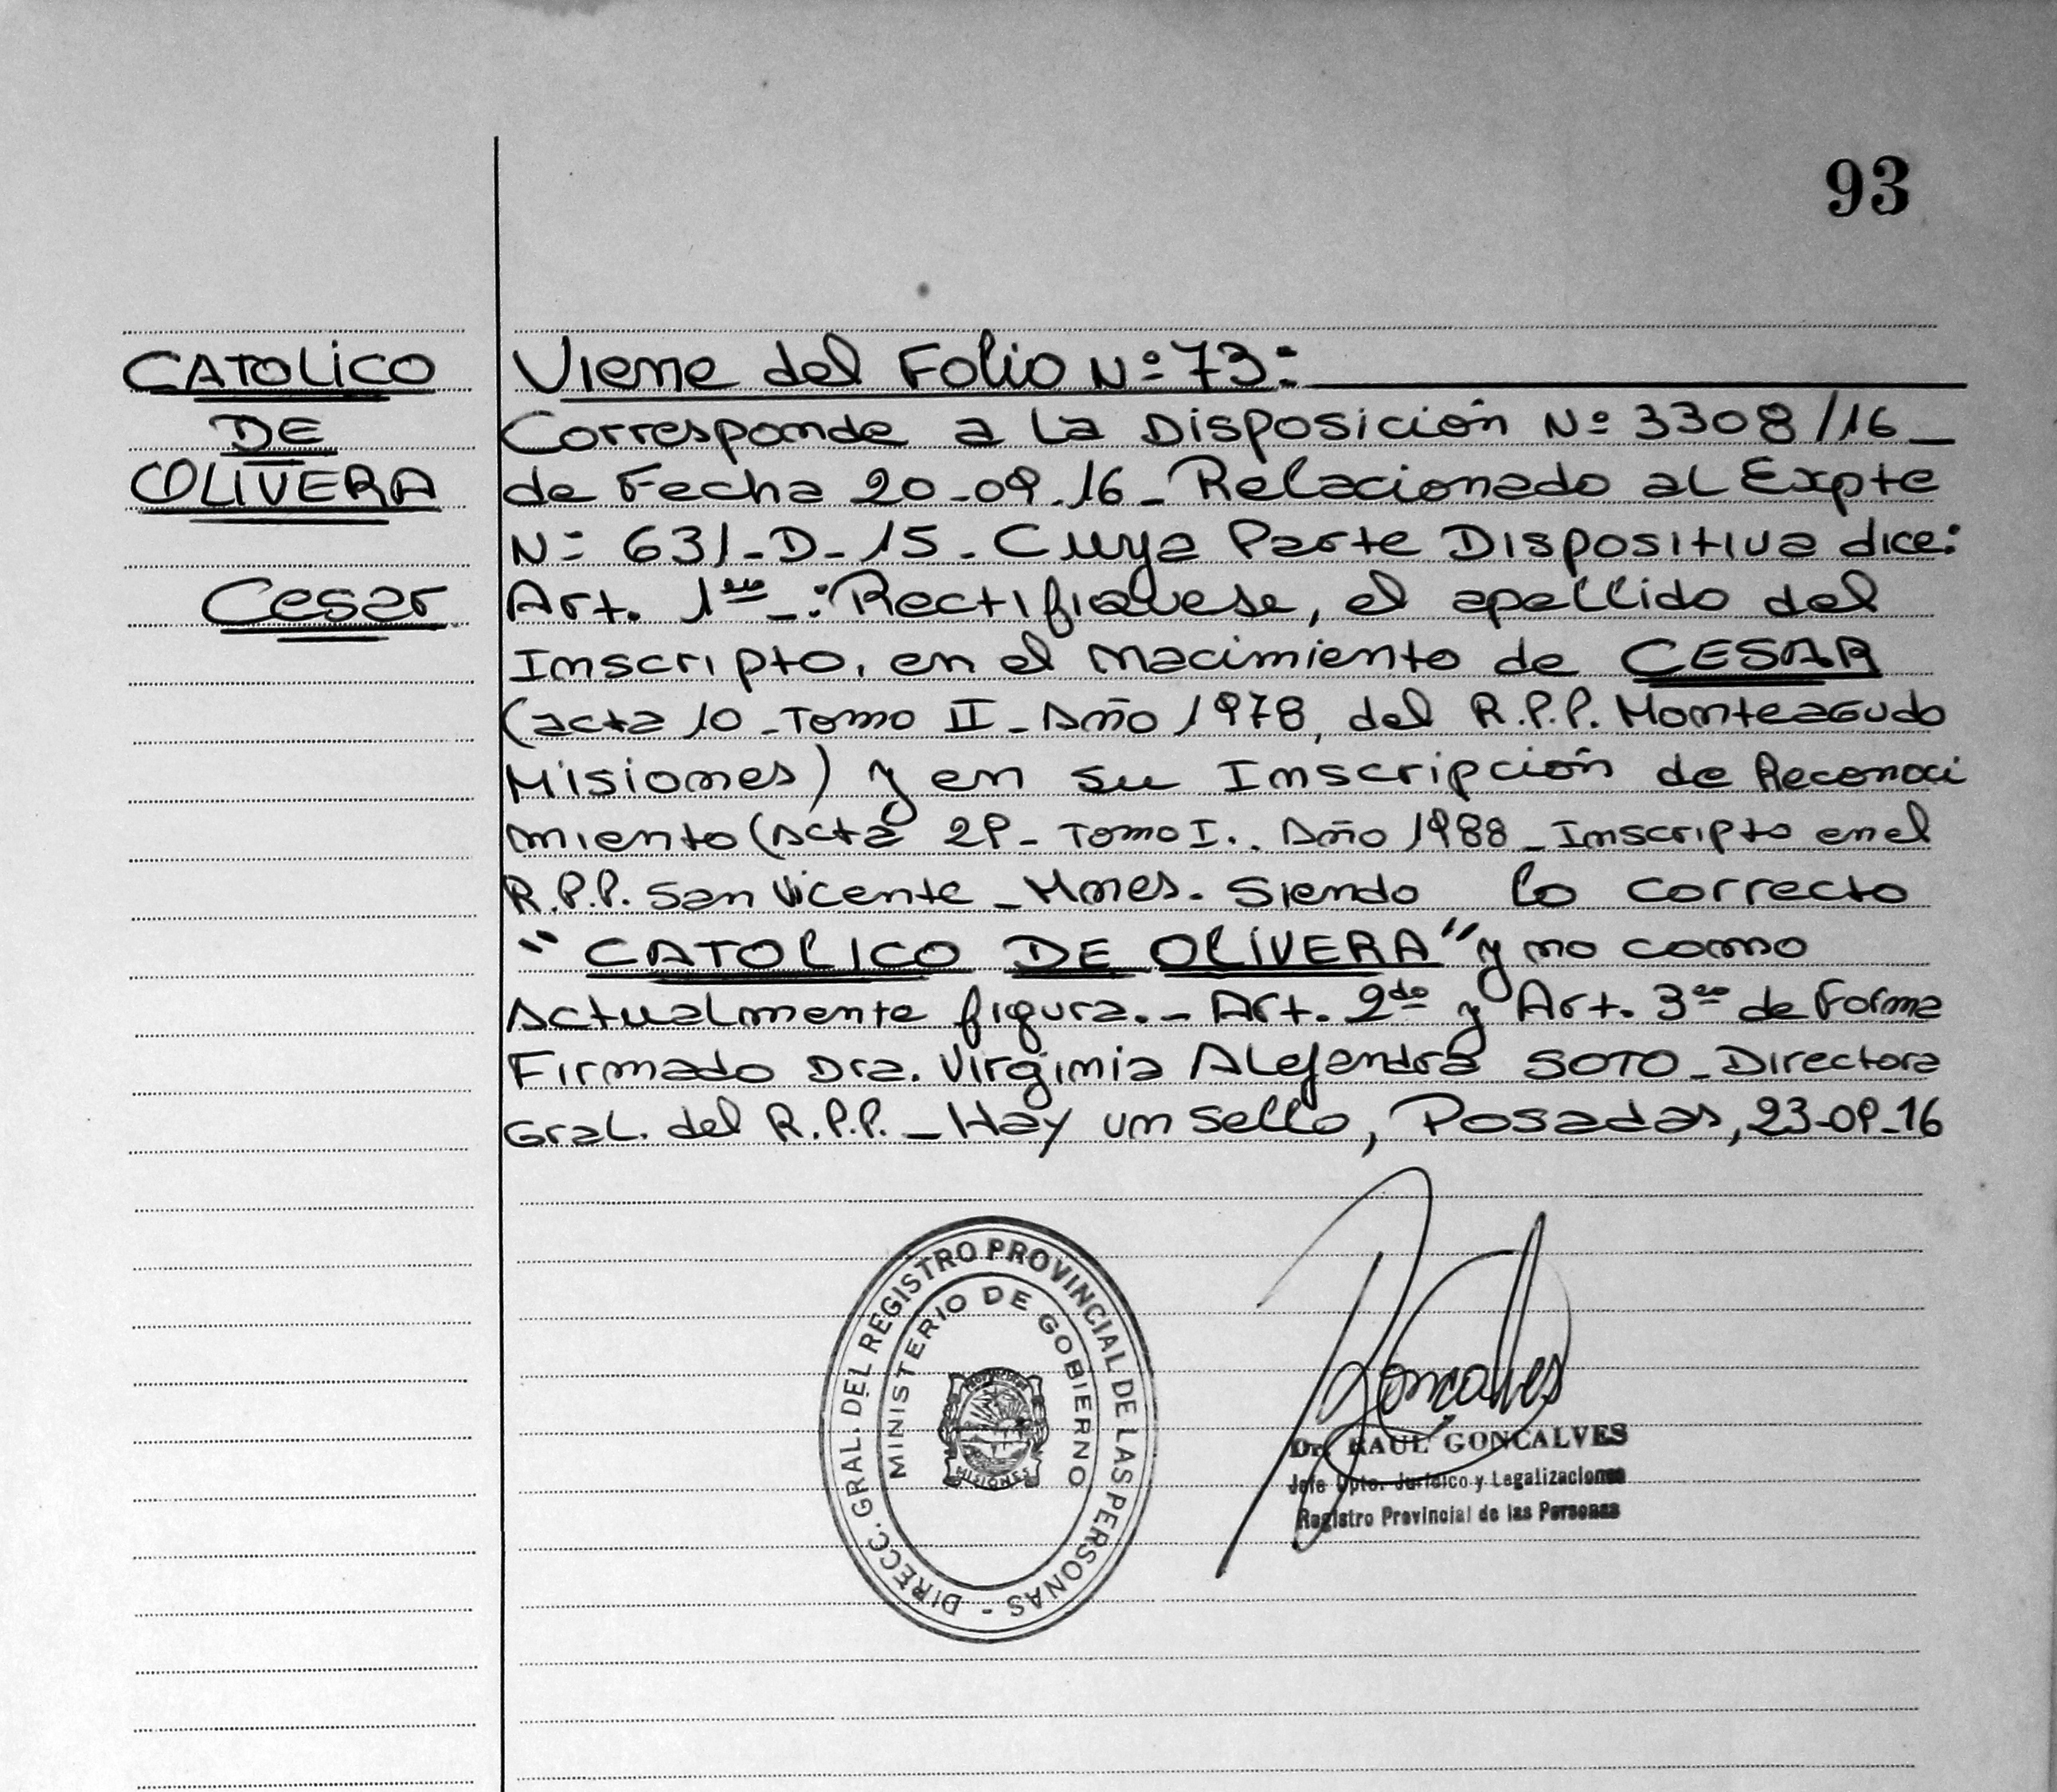 93
CATOLICO
DE
OLIVERA
Cesar
Viene del Folio Nº 73:
Corresponde a La Disposición Nº 3308/16_
de Fecha 20-09.16_ Relacionado al Expte
Nº 631-D-15. Cuya Parte Dispositiva dice:
Art. 1ero_: Rectifiquese, el apellido del
Inscripto, en el nacimiento de CESAR
(acta 10_Tomo II_Año 1978, del R.P.P. Monteagudo
Misiones) y en su Inscripción de Reconoci
miento (Acta 29_ Tomo I.. Año 1988_Inscripto en el
R.P.P. San Vicente_Mnes. Siendo lo correcto
"CATOLICO DE OLIVERA" y no como
Actualmente figura._ Art. 2do y Art. 3ro de Forma
Firmado Dra. Virginia Alejandra SOTO_Directora
Gral. del R.P.P._Hay un sello, Posadas, 23-09-16
DIRECC. GRAL. DEL REGISTRO PROVINCIAL DE LAS PERSONAS -
MINISTERIO DE GOBIERNO
MISIONES
Goncalves
Dr. RAUL GONCALVES
Jefe Dpto. Jurídico y Legalizaciones
Registro Provincial de las Personas